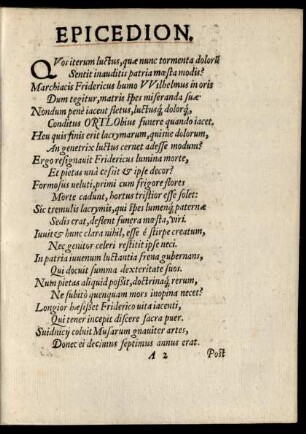 EPICEDION.
QVos iterum luctus, quæ nunc tormenta dolorũ
Sentit inauditis patria mœsta modis?
Marchiacis Fridericus humo VVilhelmus in oris
Dum tegitur, matris spes miseranda suæ
Nondum penè iacent fletus, luctusq́; dolorq́;,
Conditus ORTLObius funere quando iacet,
Heu quis finis erit lacrymarum, quiuè dolorum,
An genetrix luctus cernet adesse modum?
Ergo resignauit Fridericus lumina morte,
Et pietas unà cessit & ipse decor?
Formosus ueluti, primi cum frigore flores
Morte cadunt, hortus tristior esse solet:
Sic tremulis lacrymis, qui spes lumenq́; paternæ
Sedis erat, deflent funera mœsta, viri.
Iuuit & hunc clara nihil, esse è stirpe creatum,
Nec genitor celeri restitit ipse neci.
In patria iuuenum luctantia frena gubernans,
Qui docuit summa dexteritate suos.
Num pietas aliquid possit, doctrinaq́; rerum,
Ne subitò quenquam mors inopina necet?
Longior hæsisset Friderico uita iacenti,
Qui tener incepit discere sacra puer.
Suidnicÿ coluit Musarum gnauiter artes,
Donec ei decimus septimus annus erat.
A 2 Post